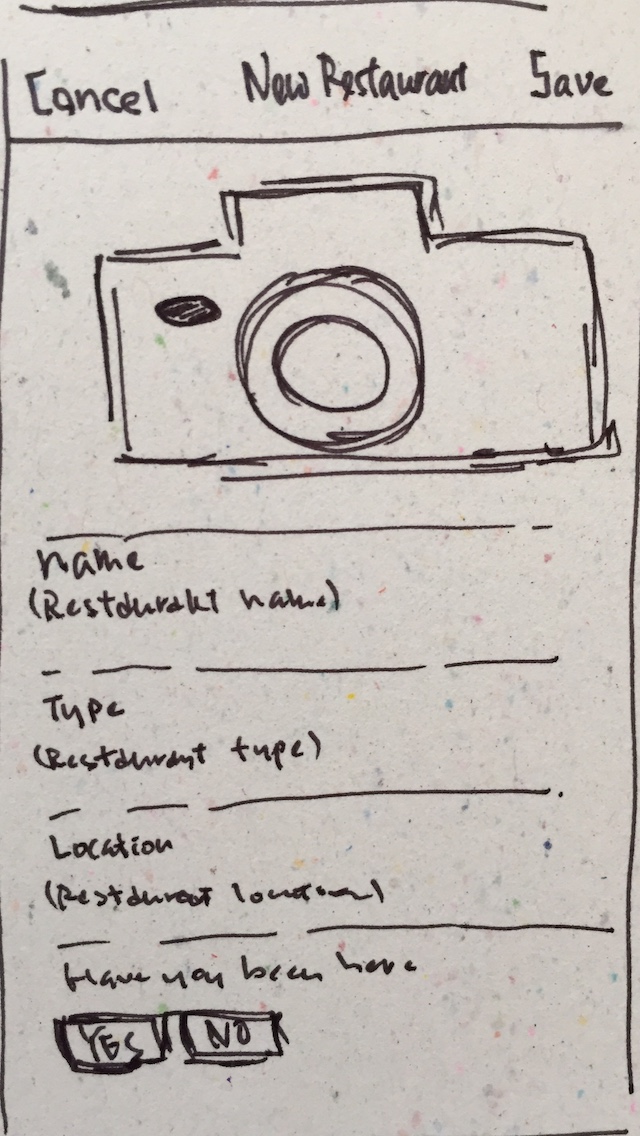 Cancel New Restaurant Save
Name
(Restaurant name)
Type
(Restaurant type)
Location
(Restaurant location)
Have you been here
YES NO